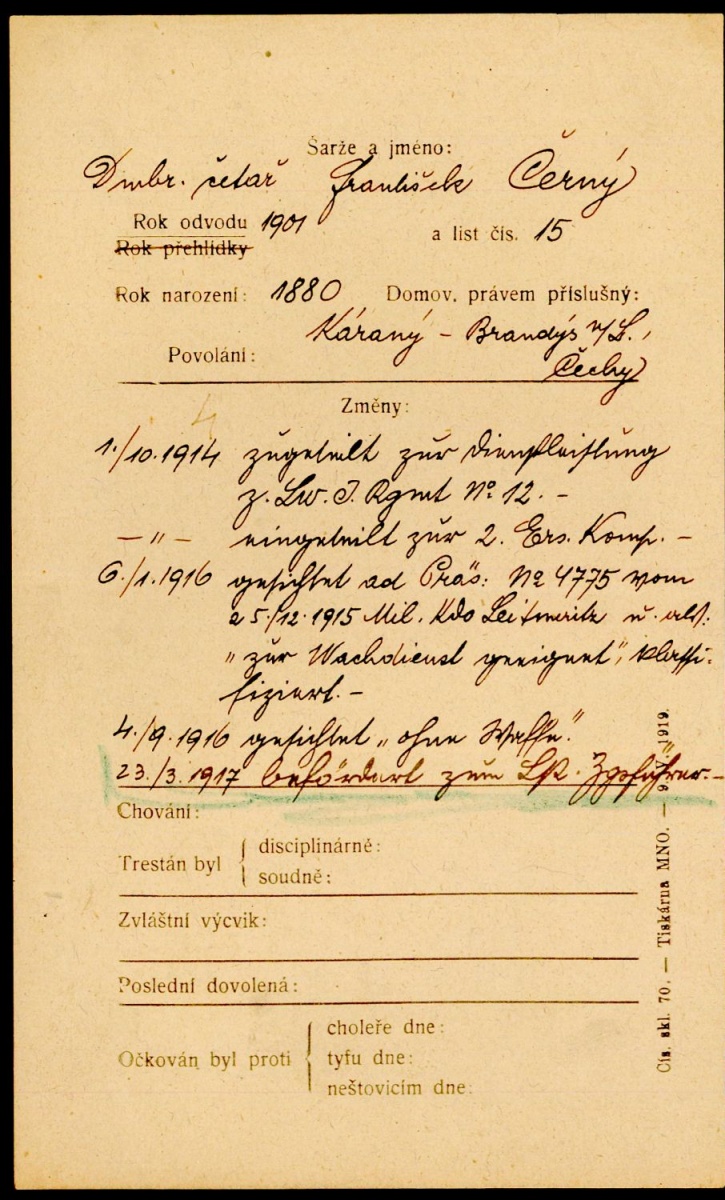 Šarže a jméno:
Dmbr. četař František Černý
Rok odvodu 1901 a list čís. 15
Rok přehlídky
Rok narození: 1880 Domov. právem příslušný:
Káraný - Brandýs n/L.,
Povolání: Čechy
Změny:
4
1./10.1914 zugeteilt zur Dienstleistung
z. Lw. I. Rgmt No 12. -
- " - eingeteilt zur 2. Ers. Komp. -
6./1.1916 gesichtet ad Präs: No 4775 vom
25./12.1915 Mil. Kdo Leitmeritz u. als:
"zur Wachdienst geeignet", klassi-
fiziert. -
4./9.1916 gesichtet "ohne Waffe".
23./3.1917 befördert zum Zgsführer. -
Chování:
Trestán byl { disciplinárně:
soudně:
Zvláštní výcvik:
Poslední dovolená:
Očkován byl proti { choleře dne:
tyfu dne:
neštovicím dne:
Čís. skl. 70. — Tiskárna MNO. — 1919.